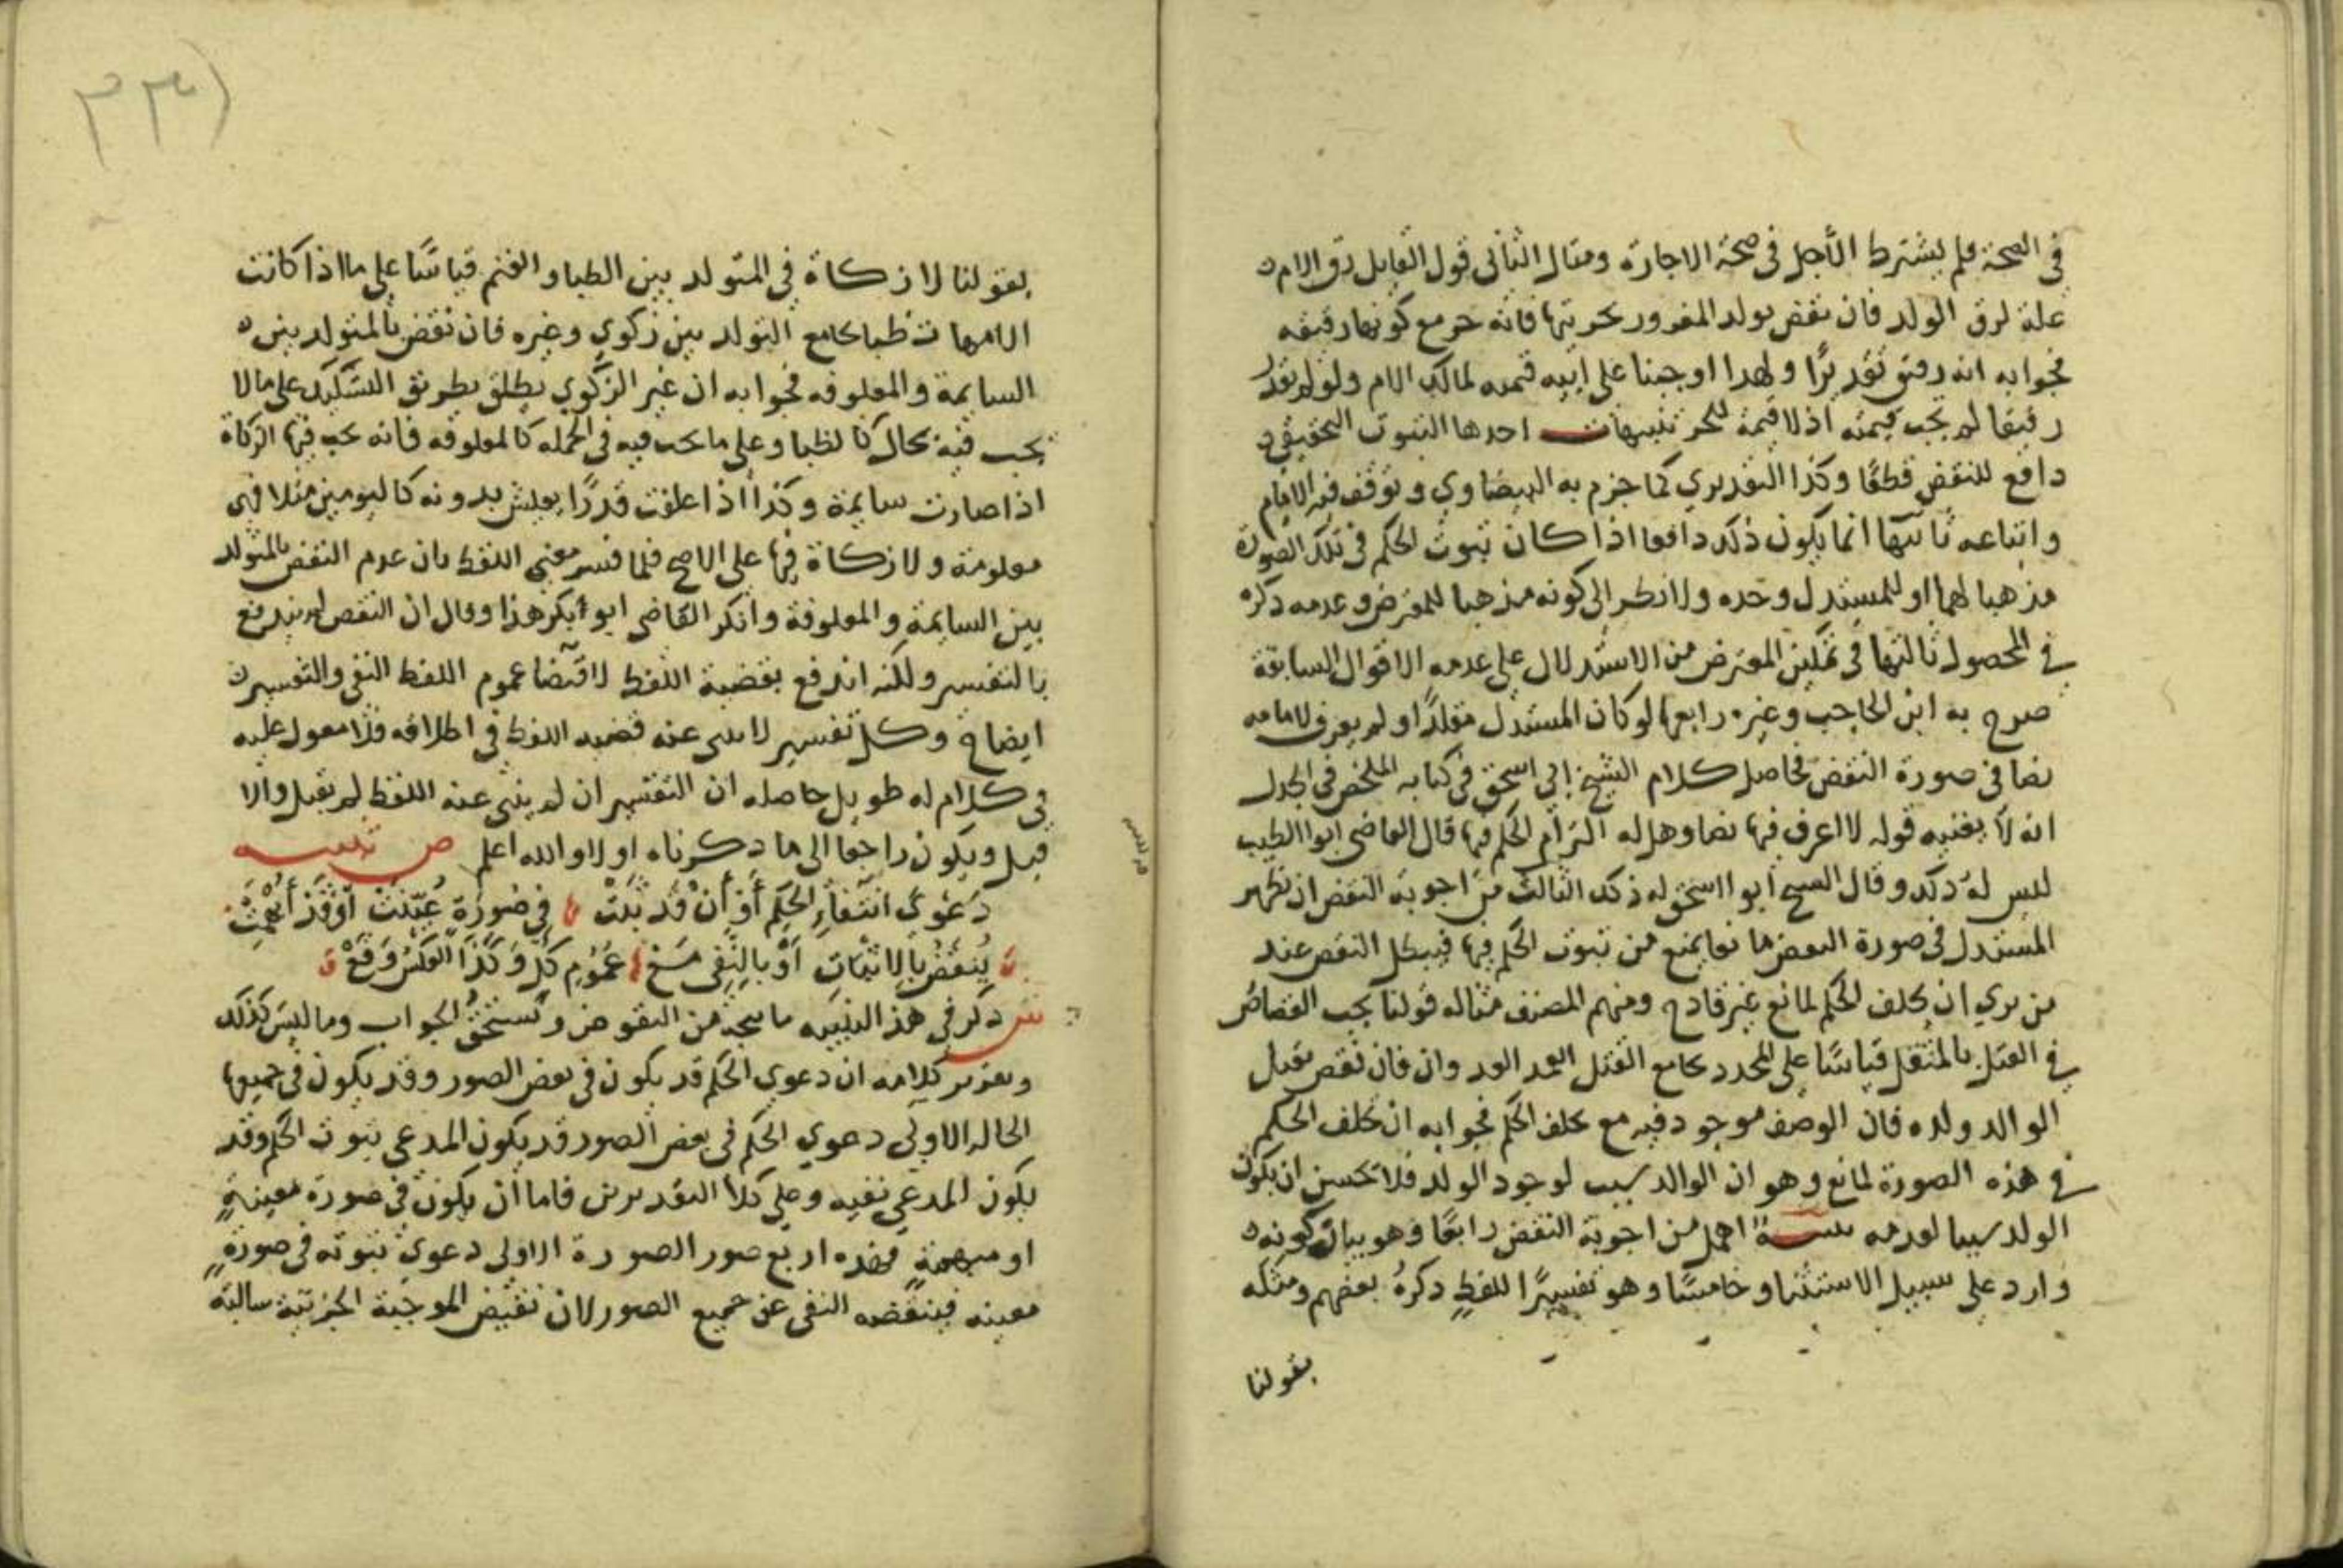 في الصحة فلم يشترط الأجل في صحة الاجارة ومثال الثاني قول القايل رق الام
علة لرق الولد فان نقض بولد المغرور بحريتها فانه حر مع كونها رقيقه
فجوابه انه رقيق تقديرًا ولهذا اوجبنا على ابيه قيمته لمالك الام ولولم نقدر
رقيقا لم تجب قيمته اذ لا قيمة للحر تنبيهات احدها الثبوت التحقيقي
دافع للنقض قطعًا وكذا التقديري كما جزم به البيضاوي وتوقف فيه الامام
واتباعه ثانيها انما يكون ذلك دافعا اذا كان ثبوت الحكم في تلك الصورة
مذهبا لهما او للمستدل وحده ولا نظر الى كونه مذهبا للمعترض وعدمه ذكره
في المحصول ثالثها في تمكين المعترض من الاستدلال على عدمه الاقوال السابقة
صرح به ابن الحاجب وغيره رابعها لو كان المستدل مقلدًا او لم يعرف لامامه
نصا في صورة النقض فحاصل كلام الشيخ ابي اسحق في كتابه الملخص في الجدل
انه لا يغنيه قوله لا اعرف فيها نصا وهل له التزام الحكم فيها قال القاضي ابو الطيب
ليس له ذلك وقال الشيخ ابو اسحق له ذلك الثالث من اجوبة النقض ان يظهر
المستدل في صورة النقض مانعا يمنع من ثبوت الحكم فيها فيبطل النقض عند
من يري ان تخلف الحكم لمانع غير قادح ومنهم المصنف مثاله قولنا يجب القصاص
في القتل بالمثقل قياسًا على المحدد بجامع القتل العمد العدوان فان نقض بقتل
الوالد ولده فان الوصف موجود فيه مع تخلف الحكم فجوابه ان تخلف الحكم
في هذه الصورة لمانع وهو ان الوالد سبب لوجود الولد فلا يحسن ان يكون
الولد سببا لعدمه تنبيه اهمل من اجوبة النقض رابعًا وهو بيان كونه
وارد على سبيل الاستثنا وخامسًا وهو تفسيرًا للفظٍ ذكره بعضهم ومثله
بقولنا
بقولنا لا زكاة في المتولد بين الظبا والغنم قياسًا على ما اذا كانت
الامهات ظبا بجامع التولد بين زكوي وغيره فان نقض بالمتولد بين
السايمة والمعلوفه فجوابه ان غير الزكوي يطلق بطريق التشكيك على ما لا
يجب فيه بحال كالظبا وعلى ما تجب فيه في الجمله كالمعلوفه فانه تجب فيها الزكاة
اذا صارت سايمة وكذا اذا علفت قدرًا يعيش بدونه كاليومين مثلا فهي
معلومة ولا زكاة فيها على الاصح فلما فسر معنى اللفظ بان عدم النقض بالمتولد
بين السايمة والمعلوفة وانكر القاضي ابو ابكر هذا وقال ان النقض لم يندفع
بالتفسير ولكنه اندفع بقضية اللفظ لاقتضا عموم اللفظ النفي والتفسير
ايضاح وكل تفسير لا ينبي عنه قضيه اللفظ في اطلاقه فلا معول عليه
في كلام له طويل حاصله ان التفسير ان لم ينبي عنه اللفظ لم يقبل والا
قبل ويكون راجعا الى ما ذكرناه اولا والله اعلم ص تنبيه
دَعْوَى انتفاءِ الحكم أَوْ أَنْ قَد ثبتْ في صُورَةٍ عُيّنتْ أوْ قد أُبْهِمَتْ
يُنقَضُ بالاثبات أوْ بالنفي مَعْ عمُومِ كلٍ وَكذا العكس وَقَعْ
ش ذكر في هذا التنبيه ما يتجه من النقوض ويستحق الجواب وما ليس كذلك
وتقرير كلامه ان دعوي الحكم قد يكون في بعض الصور وقد يكون في جميعها
الحاله الاولى دعوي الحكم في بعض الصور قد يكون المدعي ثبوت الحكم وقد
يكون المدعي نفيه وعلى كلا التقديرين فاما ان يكون في صورة معينةٍ
او مبهمةٍ فهذه اربع صور الصورة الاولى دعوي ثبوته في صورةٍ
معينه فينقضه النفي عن جميع الصور لان نقيض الموجبة الجزئية سالبة